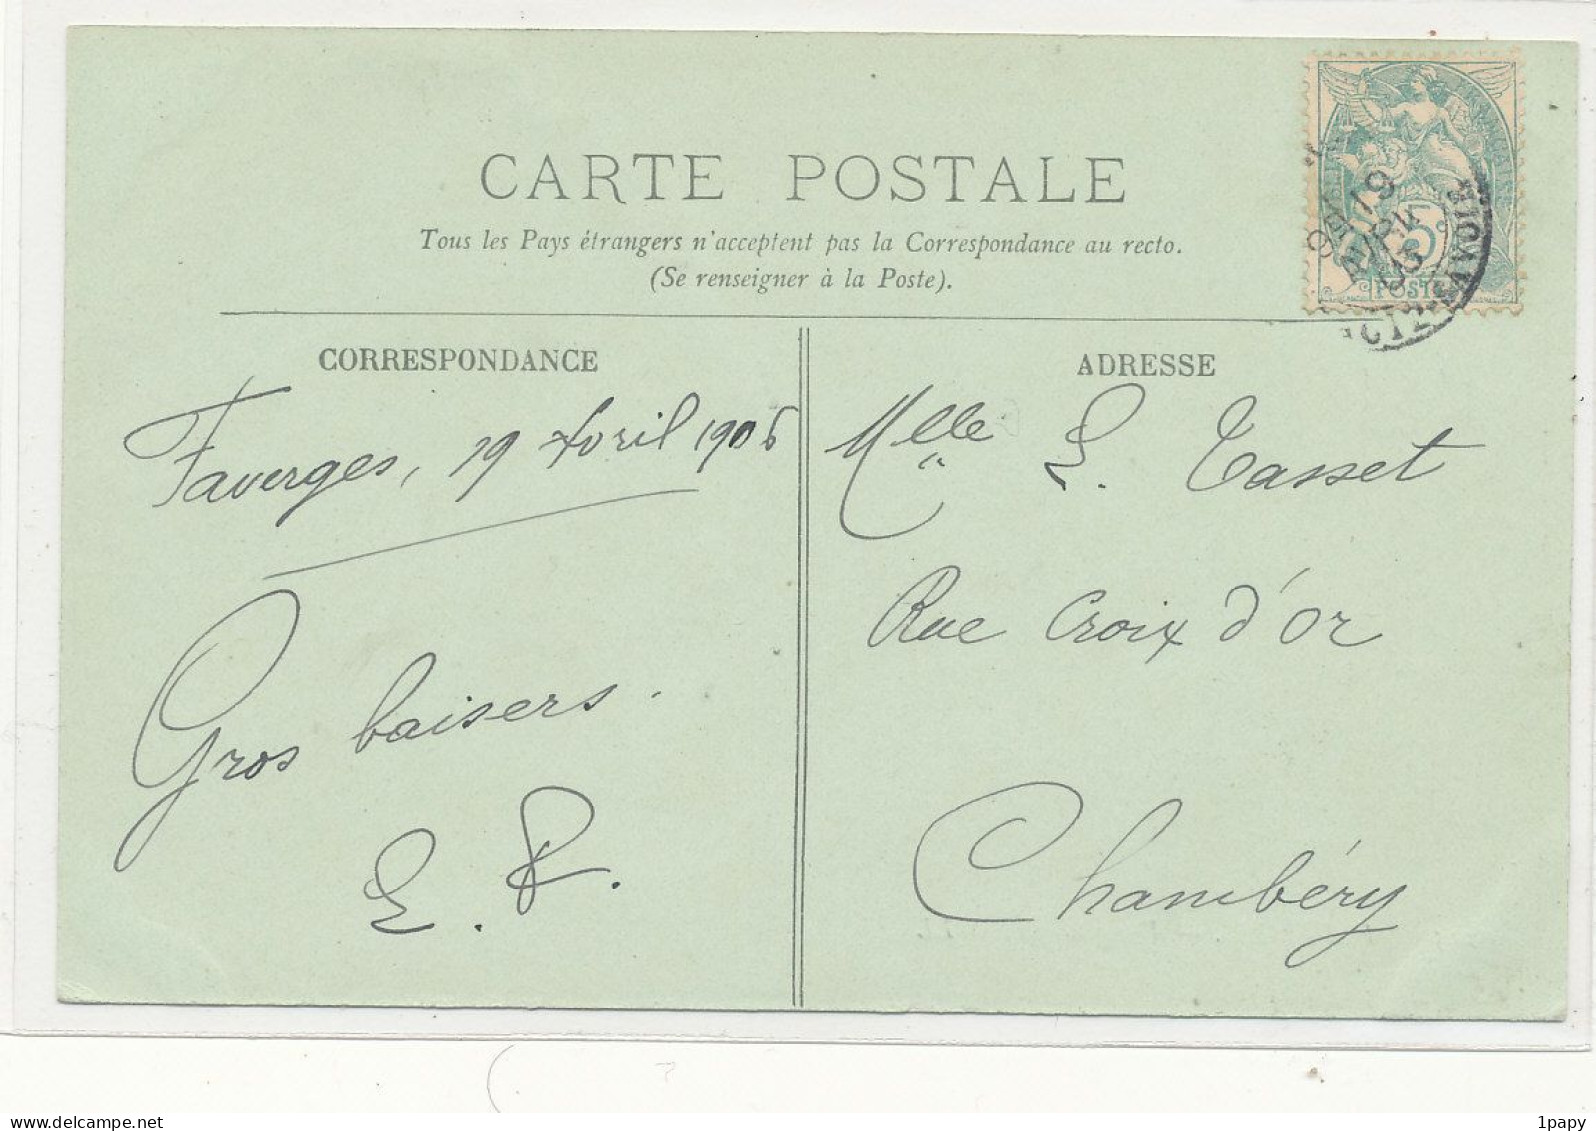 CARTE POSTALE
Tous les Pays étrangers n'acceptent pas la Correspondance au recto.
(Se renseigner à la Poste).
CORRESPONDANCE
Faverges, 19 Avril 1905
Gros baisers.
ADRESSE
Mlle L. Tasset
Rue Croix d'Or
Chambéry
5c
POSTE
SAVOIE
www.delcampe.net
1papy